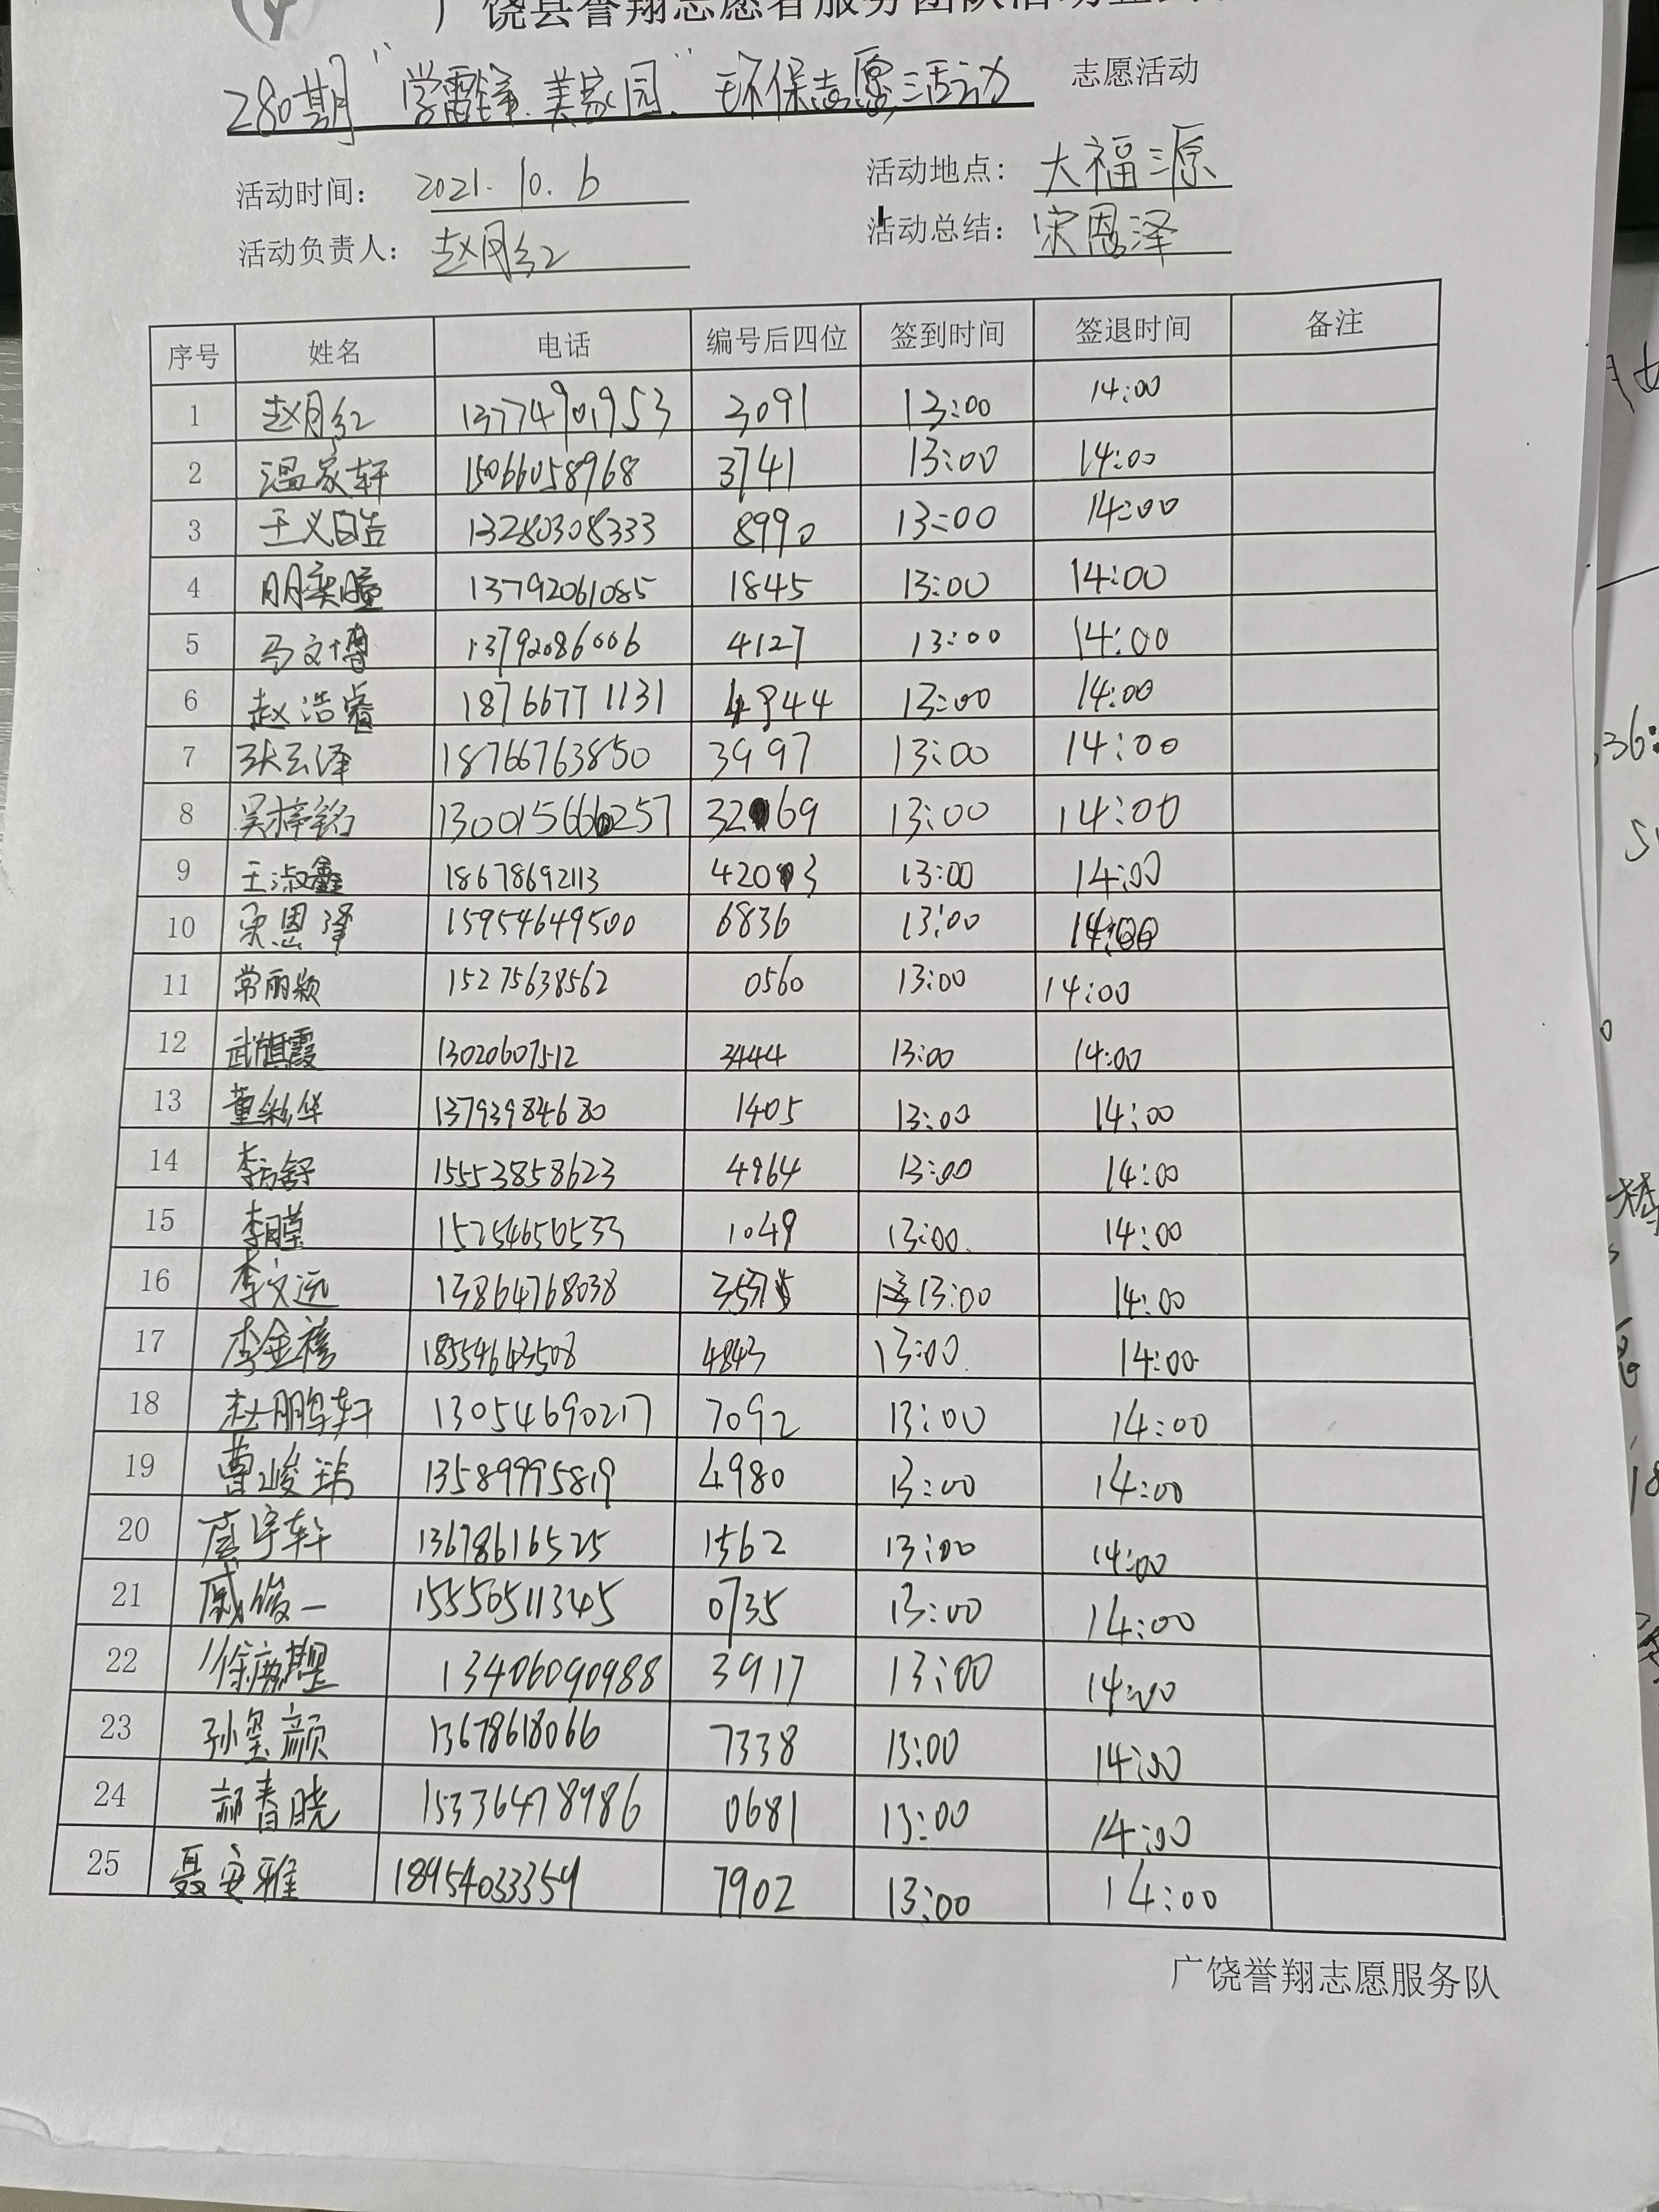 广饶县誉翔志愿者服务团队活动签到表
280期 "学雷锋.美家园" 环保志愿活动 志愿活动
活动时间: 2021.10.6 活动地点: 大福源
活动负责人: 赵月红 活动总结: 宋恩泽
序号 姓名 电话 编号后四位 签到时间 签退时间 备注
1 赵月红 13774901953 3091 13:00 14:00
2 温家轩 15066058968 3741 13:00 14:00
3 王义皓 13280308333 8990 13:00 14:00
4 13792061085 1845 13:00 14:00
5 马文博 13792086006 4127 13:00 14:00
6 赵浩睿 18766771131 4944 13:00 14:00
7 张云泽 18766763850 3997 13:00 14:00
8 吴梓铭 3269 13:00 14:00
9 王淑鑫 18678692113 4203 13:00 14:00
10 宋恩泽 15954649500 6836 13:00 14:00
11 常丽颖 15275638562 0560 13:00 14:00
12 武镇霞 13020607512 3444 13:00 14:00
13 董彩华 13793984680 1405 13:00 14:00
14 李方舒 15553858623 4964 13:00 14:00
15 15254650533 1049 13:00 14:00
16 李文远 13864768038 13:00 14:00
17 李金禧 18554643508 4843 13:00 14:00
18 赵鹏轩 13054690217 7092 13:00 14:00
19 曹峻玮 13589995819 4980 13:00 14:00
20 盧宇轩 13678616525 1562 13:00 14:00
21 戚俊一 15550511345 0735 13:00 14:00
22 13406090988 3917 13:00 14:00
23 孙玺颜 13678618066 7338 13:00 14:00
24 郝春晓 15336478986 0681 13:00 14:00
25 聂安雅 18954033359 7902 13:00 14:00
广饶誉翔志愿服务队